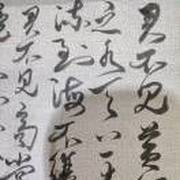 君不见黄
之水天上来
流到海不復
君不见高堂